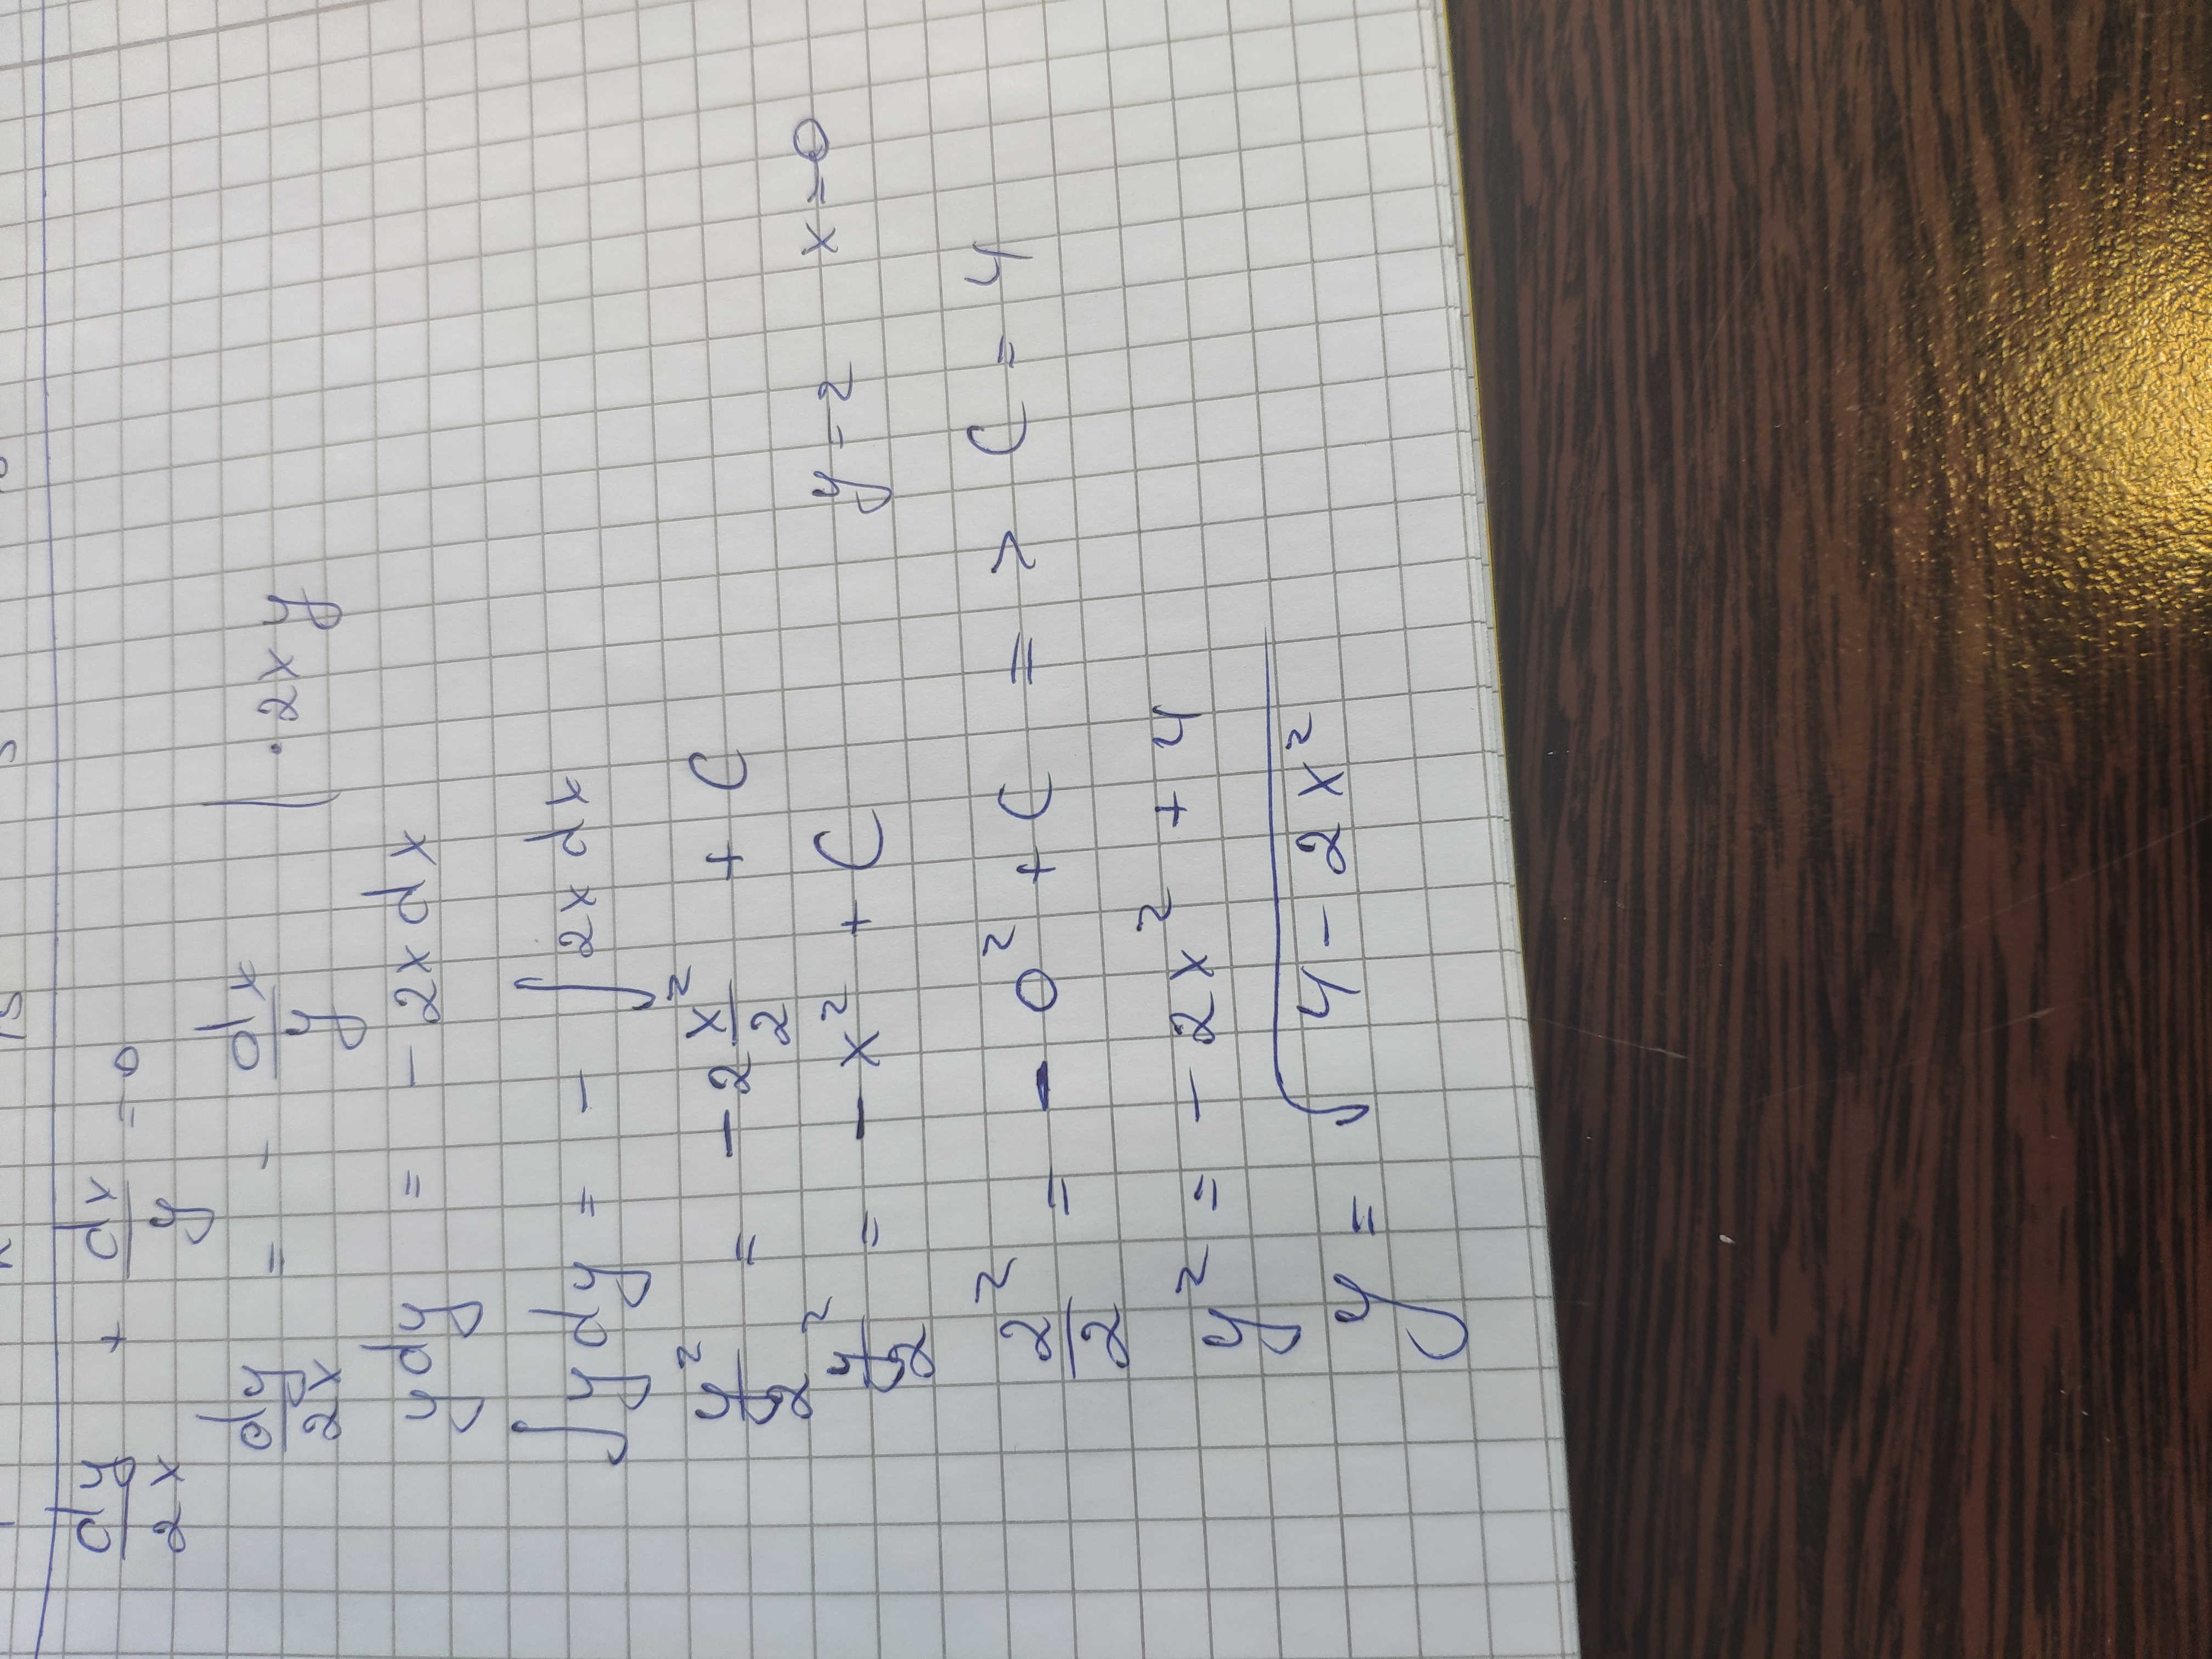 dy/2x + dx/y = 0
dy/2x = - dx/y | · 2xy
y dy = - 2x dx
∫ y dy = - ∫ 2x dx
y²/2 = - 2 x²/2 + C
y²/2 = - x² + C   y = 2   x = 0
2²/2 = - 0² + C => C = 4
y² = - 2x² + 4
y = √(4 - 2x²)